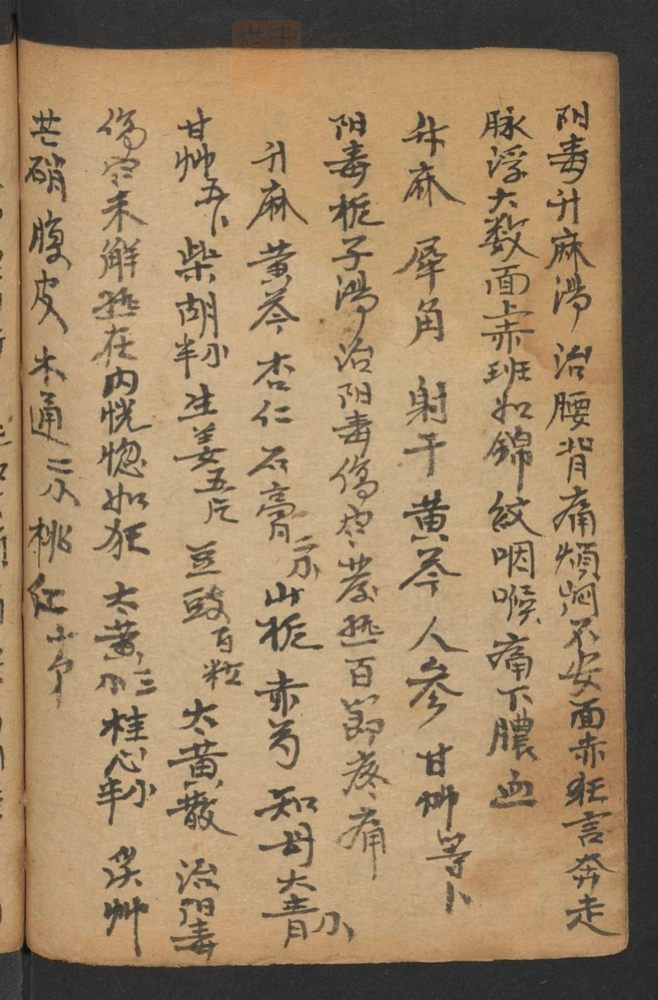 阳毒升麻湯 治腰背痛煩闷不安面赤狂言奔走
脉浮大数面上赤班如錦紋咽喉痛下膿血
升麻 犀角 射干 黄芩 人参 甘艸等卜
阳毒梔子湯治阳毒傷寒荣热百節疼痛
升麻 黄芩 杏仁 石膏二分 山梔 赤芍 知母 大青
甘艸五卜 柴胡半 生姜五片 豆豉百粒 大黄散 治阳毒
傷寒未解热在内恍惚如狂 大黄 桂心半 艸
芒硝 腹皮 木通二分 桃仁十个